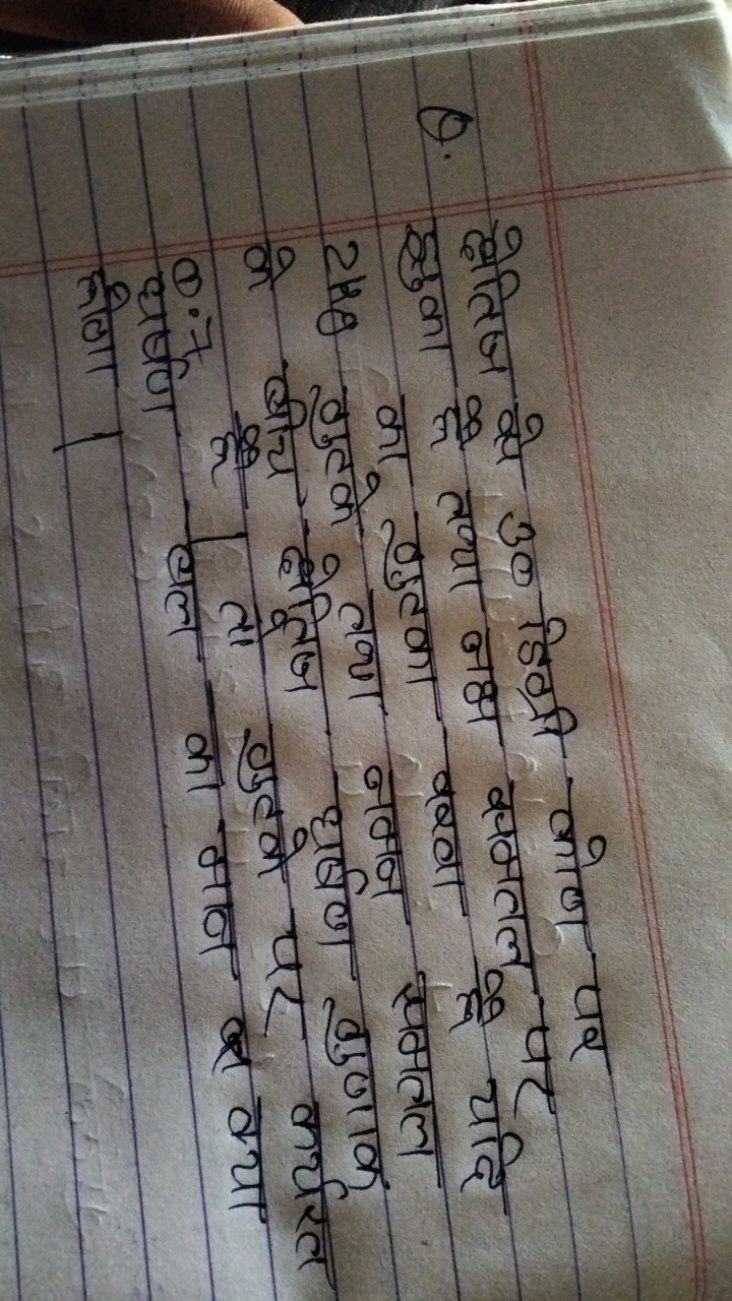 Q. क्षैतिज से 30 डिग्री कोण पर
झुका है तथा नक्ष समतल पर
2kg का गुटका रखा है यदि
गुटके तथा नमन समतल
के बीच क्षैतिज घर्षण गुणांक
0.7 है । तो गुटके पर कार्यरत
घर्षण बल का मान क्या
होगा ।